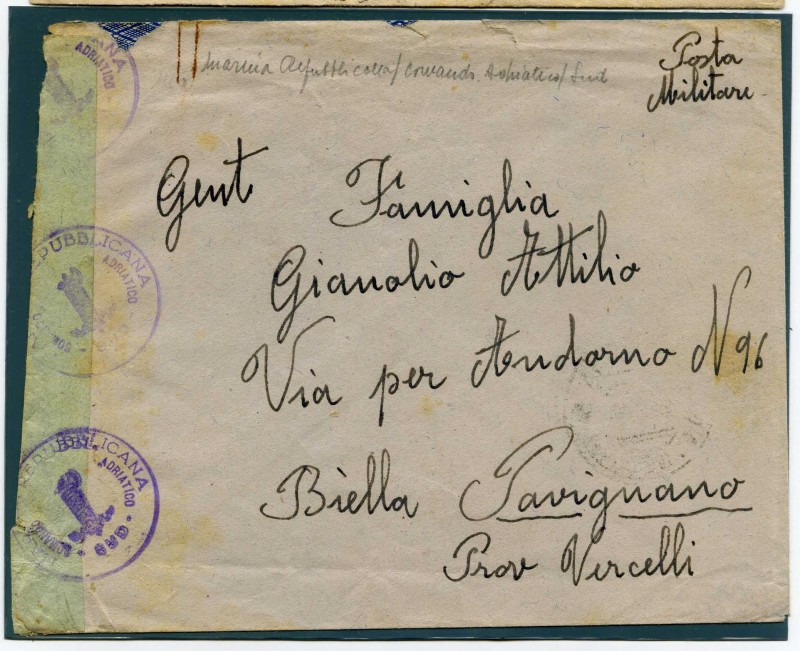 Marina Repubblicana/Comando Adriatico/Sud
Posta
Militare
Gent Famiglia
Gianolio Attilio
Via per Andorno N 96
Biella Pavignano
Prov Vercelli
ANA
ADRIATICO
PUBBLICANA
ADRIATICO
REPUBBLICANA
ADRIATICO
COMANDO
SUD